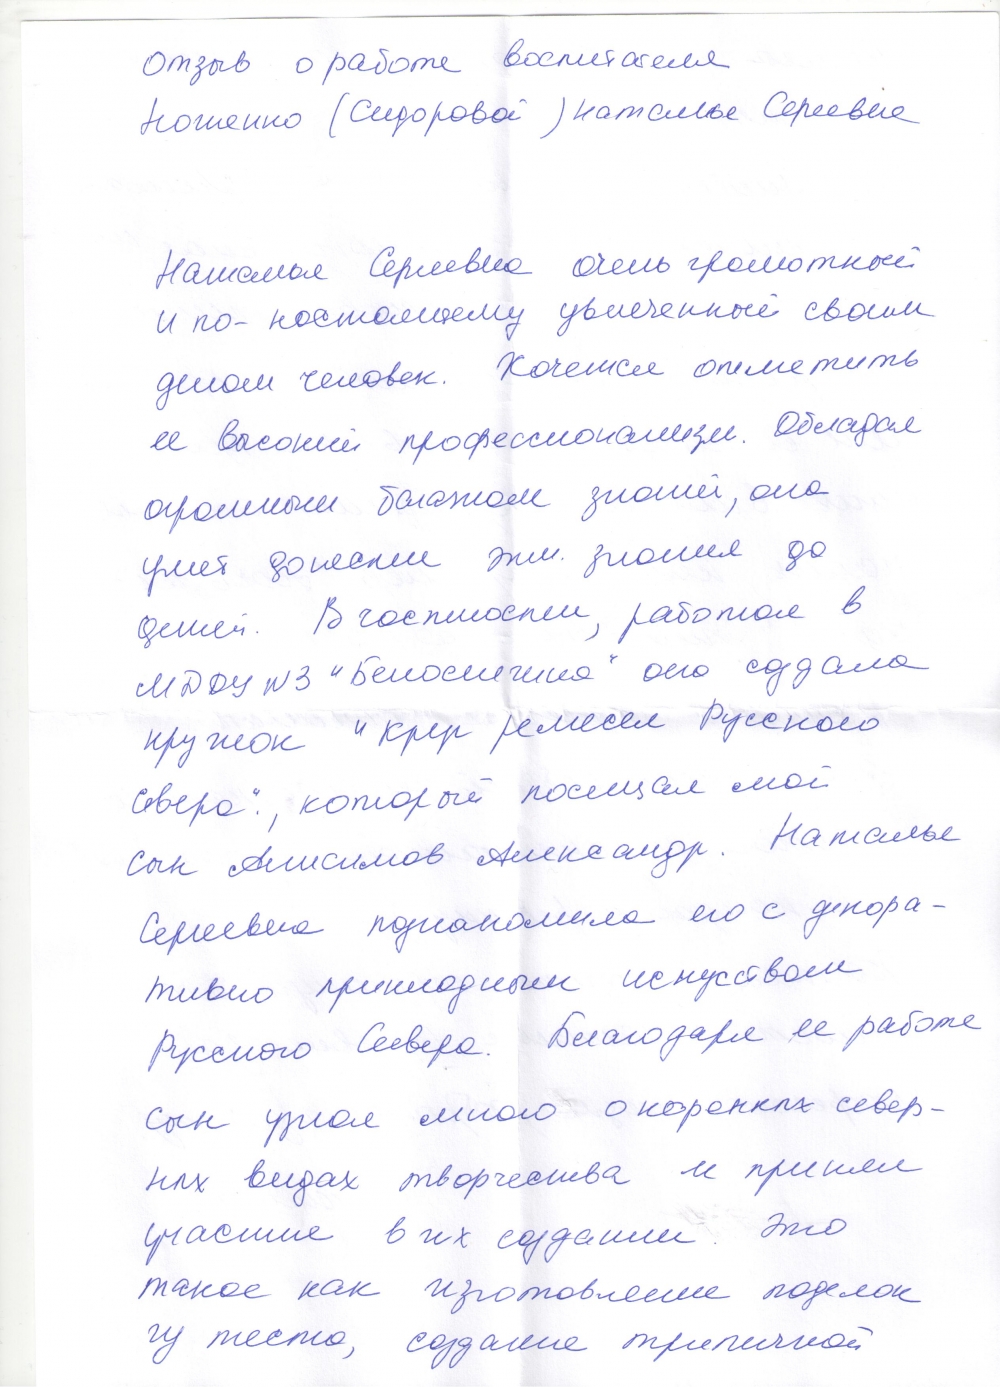 Отзыв о работе воспитателя
Ношенко (Сидоровой) Наталье Сергеевне
Наталья Сергеевна очень грамотный
и по-настоящему увлеченный своим
делом человек. Хочется отметить
ее высокий профессионализм. Обладая
огромным багажом знаний, она
умеет донести эти знания до
детей. В частности, работая в
МДОУ №3 "Белоснежка" она создала
кружок "Круг ремесел Русского
Севера", который посещал мой
сын Анисимов Александр. Наталье
Сергеевна познакомила его с декора-
тивно прикладным искуством
Русского Севера. Благодаря ее работе
сын узнал много о коренных север-
ных видах творчества и принял
участие в их создании. Это
такое как изготовление поделок
из теста, создание тряпичной